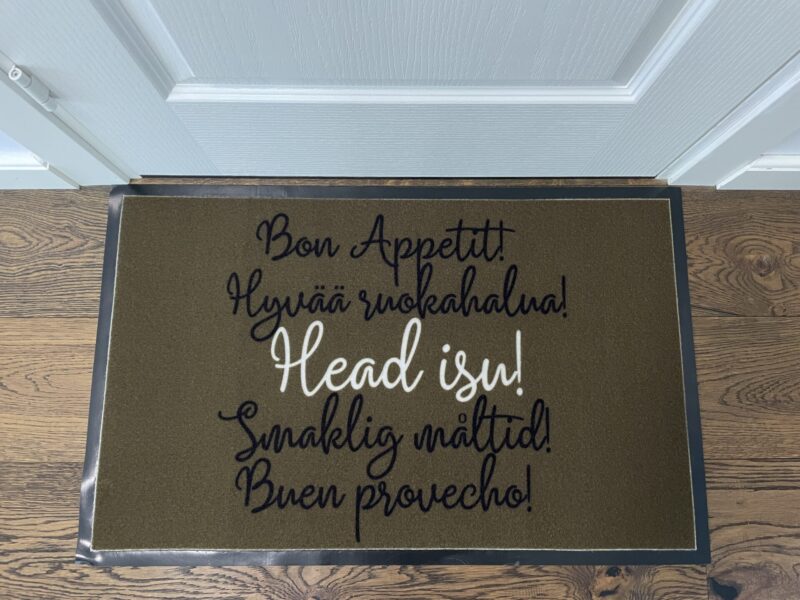 Bon Appetit!
Hyvää ruokahalua!
Head isu!
Smaklig måltid!
Buen provecho!